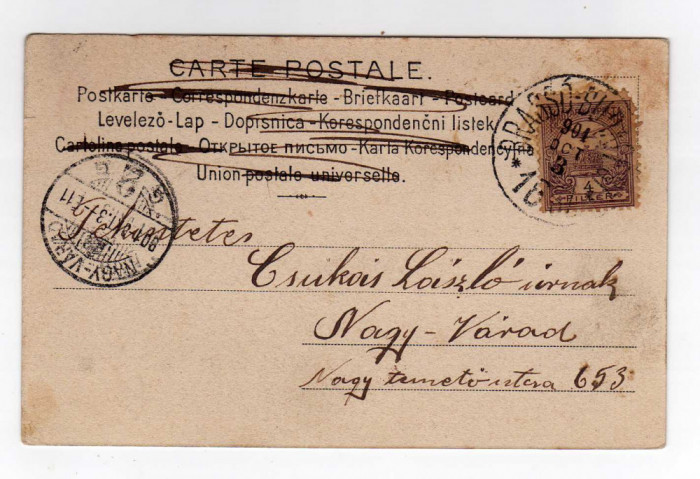 CARTE POSTALE.
Postkarte - Correspondenzkarte - Briefkaart - Postcard
Levelező-Lap - Dopisnica - Korespondenční listek
Cartolina postale - Открытое письмо - Karta Korespondencyjna
Union postale universelle.
BRASSÓ
904
OCT
4
FILLÉR
NAGY-VÁRAD
Tekintetes
Csukás László úrnak
Nagy-Várad
Nagy temető utcza 653